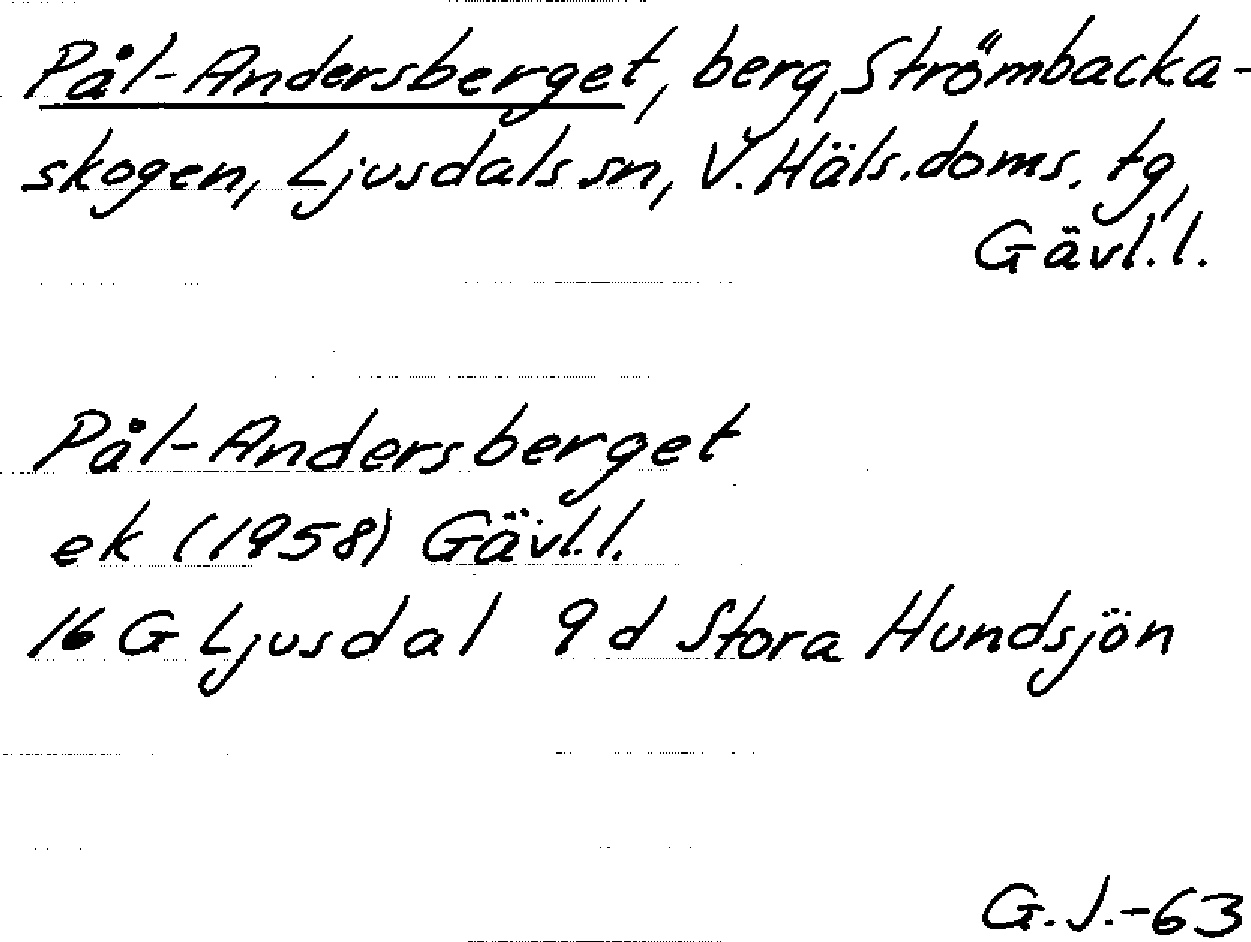 Pål-Andersberget, berg, Strömbacka-
skogen, Ljusdals sn, V. Häls. doms. tg,
Gävl. l.
Pål-Andersberget
ek (1958) Gävl. l.
16 G Ljusdal 9 d Stora Hundsjön
G. J. -63